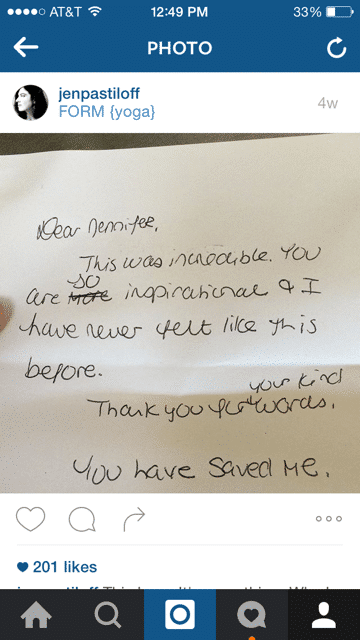 AT&T 12:49 PM 33%
PHOTO
jenpastiloff
FORM {yoga}
4w
Dear Jennifer,
This was incredible. You
so
are more inspirational & I
have never felt like this
before.
your kind
Thank you for words.
You have saved me.
201 likes